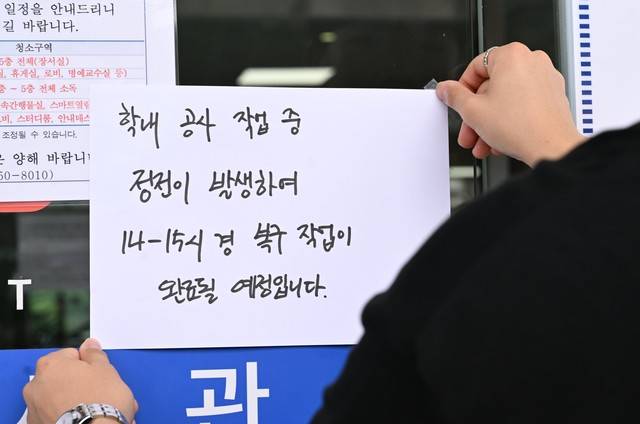 일정을 안내드리니
길 바랍니다.
청소구역
5층 전체(장서실)
실, 휴게실, 로비, 명예교수실 등)
~ 5층 전체 소독
속간행물실, 스마트열람
로비, 스터디룸, 안내데스
조정될 수 있습니다.
은 양해 바랍니다
50-8010)
학내 공사 작업 중
정전이 발생하여
14-15시 경 복구 작업이
완료될 예정입니다.
T
관